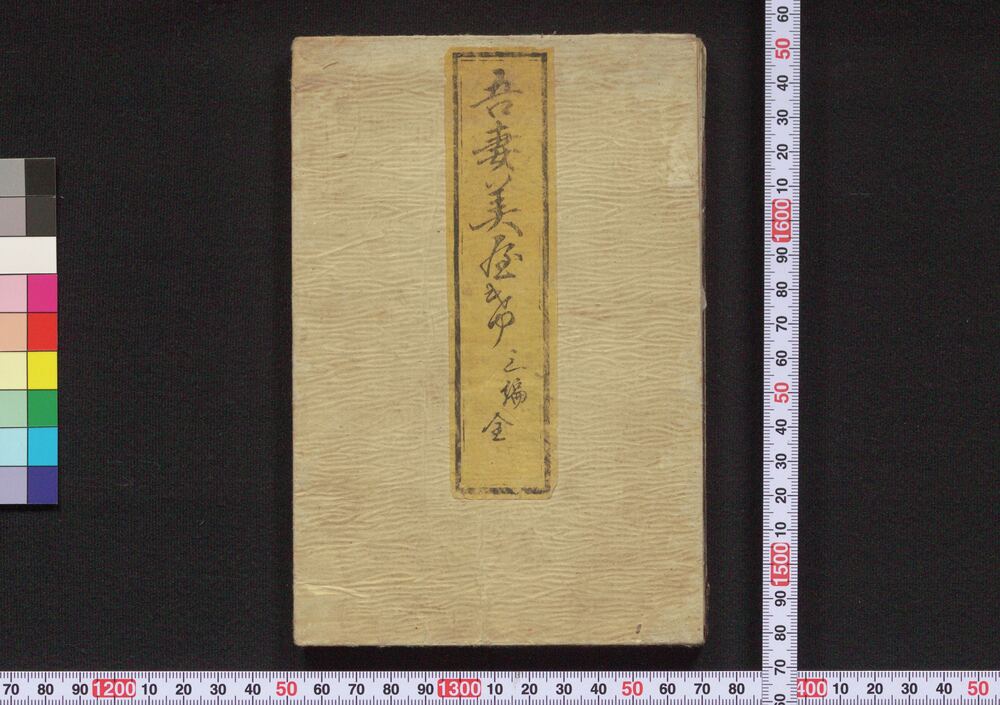 吾妻美屋希 三編 全
60 50 40 30 20 10 1600 90 80 70 60 50 40 30 20 10 1500 90 80 70 60
70 80 90 1200 10 20 30 40 50 60 70 80 90 1300 10 20 30 40 50 60 70 80 400 10 20 30 40 50